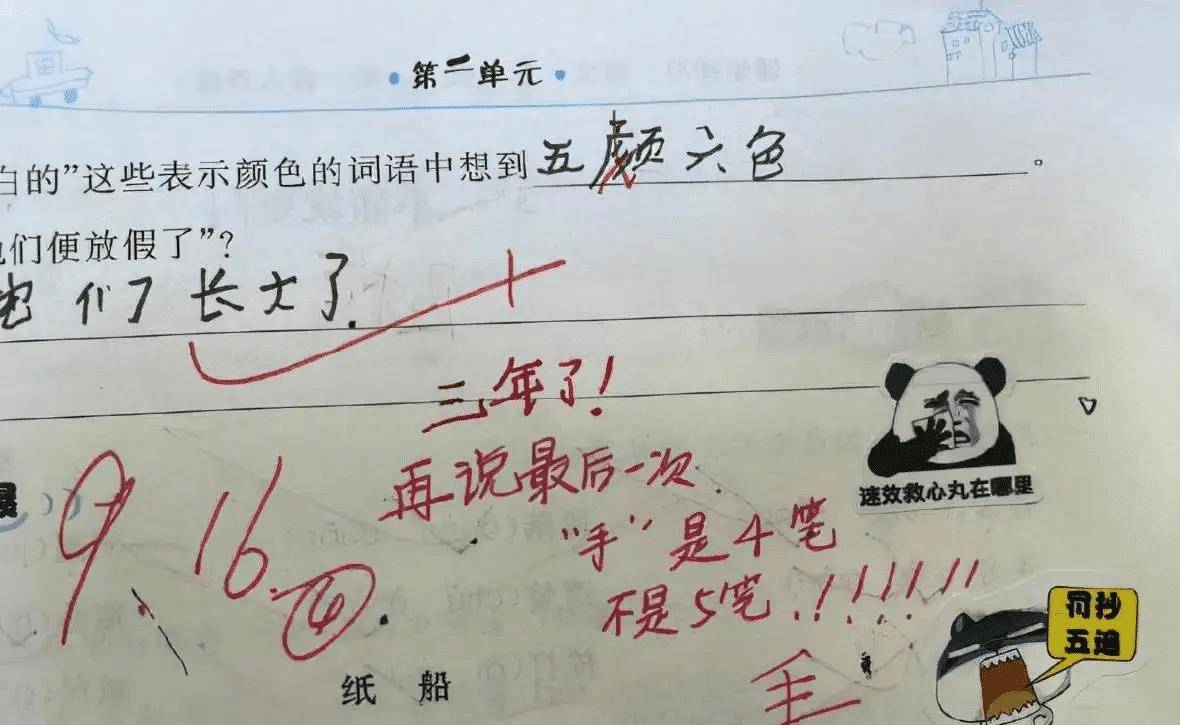 第二单元
白的”这些表示颜色的词语中想到 五颜六色 。
他们便放假了”?
他们了长大了.
三年了!
再说最后一次.
“手”是4笔
不是5笔.!!!!!!!
速效救心丸在哪里
9.16.④.
罚抄五遍
纸 船